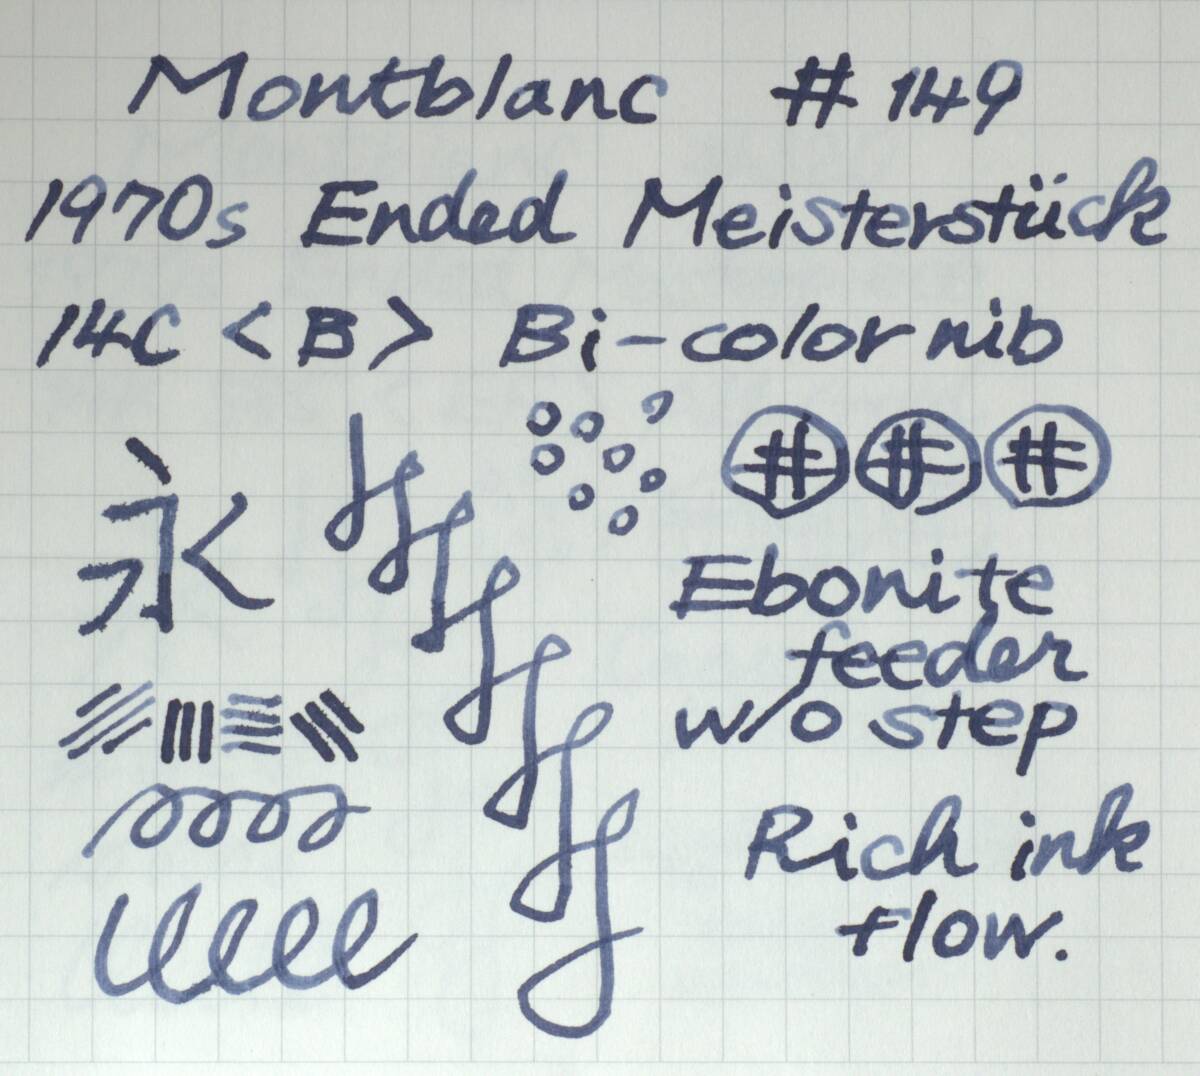 Montblanc # 149
1970s Ended Meisterstück
14C <B> Bi-color nib
永
# # #
Ebonite
feeder
w/o step
Rich ink
flow.